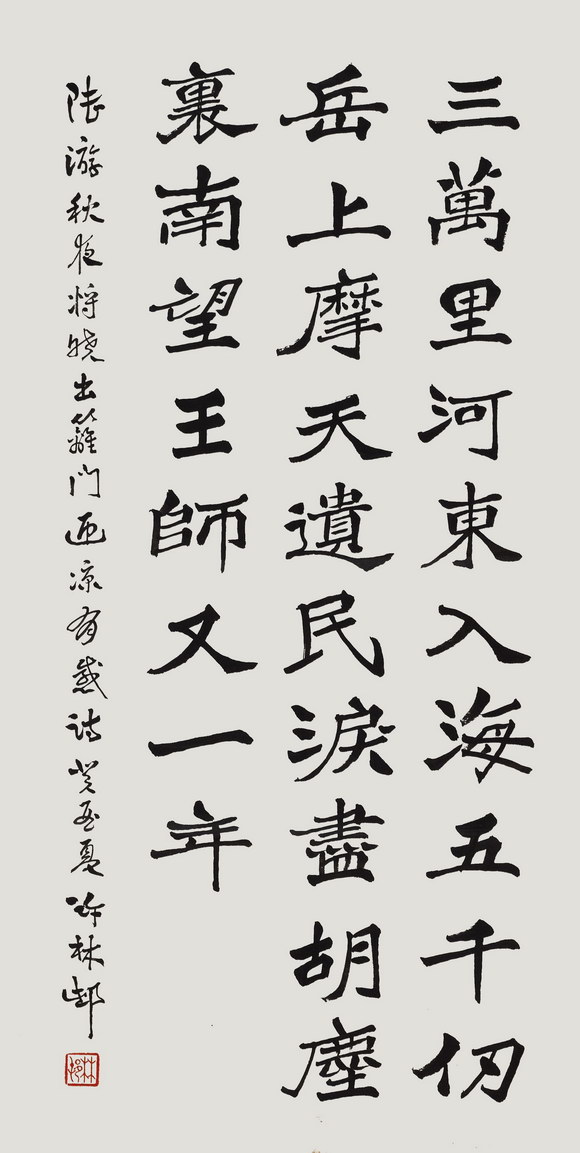 三萬里河東入海五千仞
岳上摩天遺民淚盡胡塵
裏南望王師又一年
陸游秋夜将曉出籬门迎凉有感诗癸夏许林邨
林邨